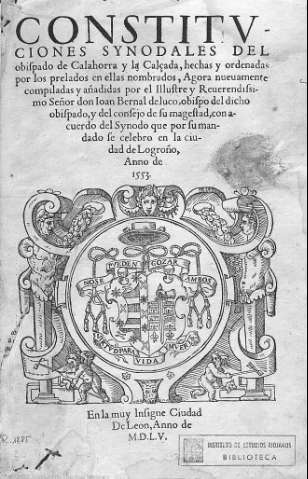 CONSTITV
CIONES SYNODALES DEL
obispado de Calahorra y la Calçada, hechas y ordenadas
por los prelados en ellas nombrados, Agora nueuamente
compiladas y añadidas por el Illustre y Reuerendissi-
mo Señor don Ioan Bernal de luco, obispo del dicho
obispado, y del consejo de su magestad, con a-
cuerdo del Synodo que por su man-
dado se celebro en la ciu-
dad de Logroño,
Anno de
1553.
PVEDEN GOZAR
NOSE AMBOS
VIDA
En la muy Insigne Ciudad
De Leon, Anno de
M.D.L.V.
INSTITUTO DE ESTUDIOS RIOJANOS
BIBLIOTECA